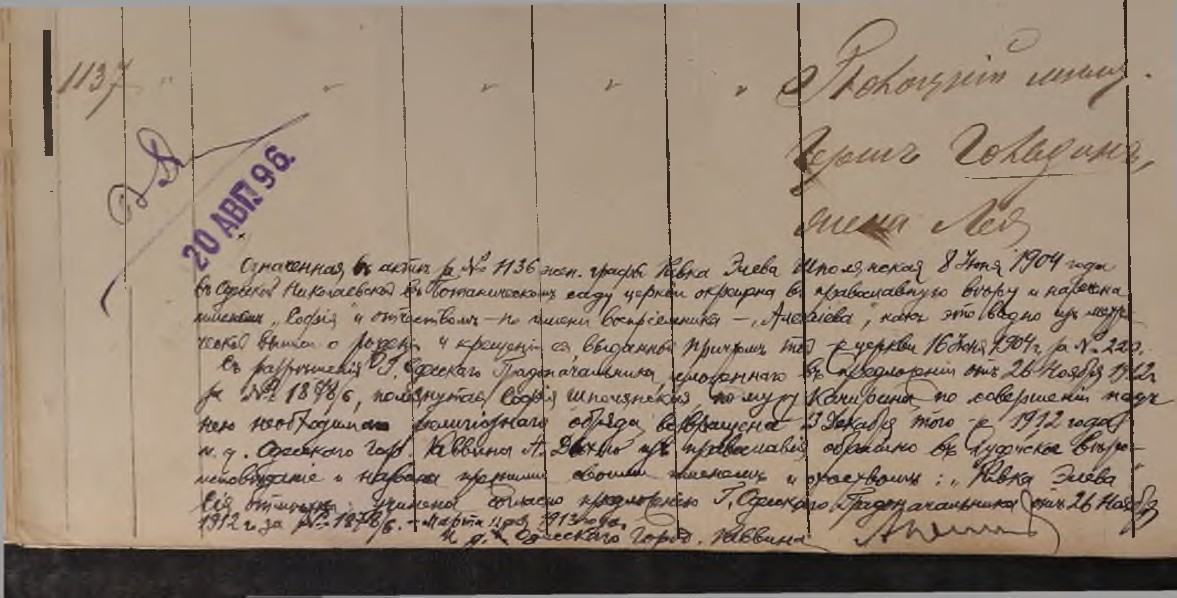 1137 " " " " "
мѣщ.
Гершъ Гольдинъ,
жена Лея
20 АВГ. 96.
Означенная въ актѣ за № 1136 жен. графы Ривка Элева Шполянская 8 Іюня 1904 года
въ Одесской Николаевской въ Ботаническомъ саду церкви окрещена въ православную вѣру и наречена
именемъ „Софія" и отчествомъ – по имени воспріемника – „Алексіева", какъ это видно изъ метри-
ческой выписи о рожденіи и крещеніи ея, выданной причтомъ той-же церкви 16 Іюня 1904 г. за № 220.
Съ разрѣшенія Г. Одесскаго Градоначальника, изложеннаго въ предложеніи отъ 26 Ноября 1912 г.
за № 18786, помянутая Софія Шполянская по мужу по совершеніи надъ
нею необходимаго религіознаго обряда возвращена 3 Декабря того-же 1912 года
и. д. Одесскаго Гор. Раввина А. изъ православія обратно въ іудейское вѣро-
исповѣданіе и названа прежними своими именемъ и отчествомъ: „Ривка Элева
Сія отмѣтка учинена согласно предложенію Г. Одесскаго Градоначальника отъ 26 Ноября
1912 г. за № 18786. – Марта дня 1913 года.
И. д. Одесскаго Город. Раввина